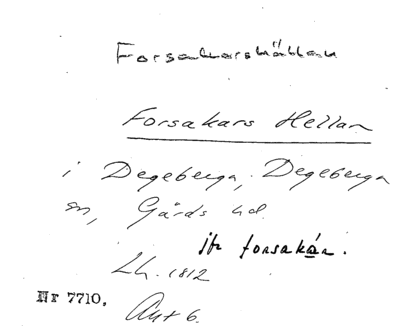 Forsakarshällan
Forsakars Hellan
i Degeberga, Degeberga
sn, Gärds hd.
jfr forsakár.
Lh. 1812
Nr 7710,
Akt 6.